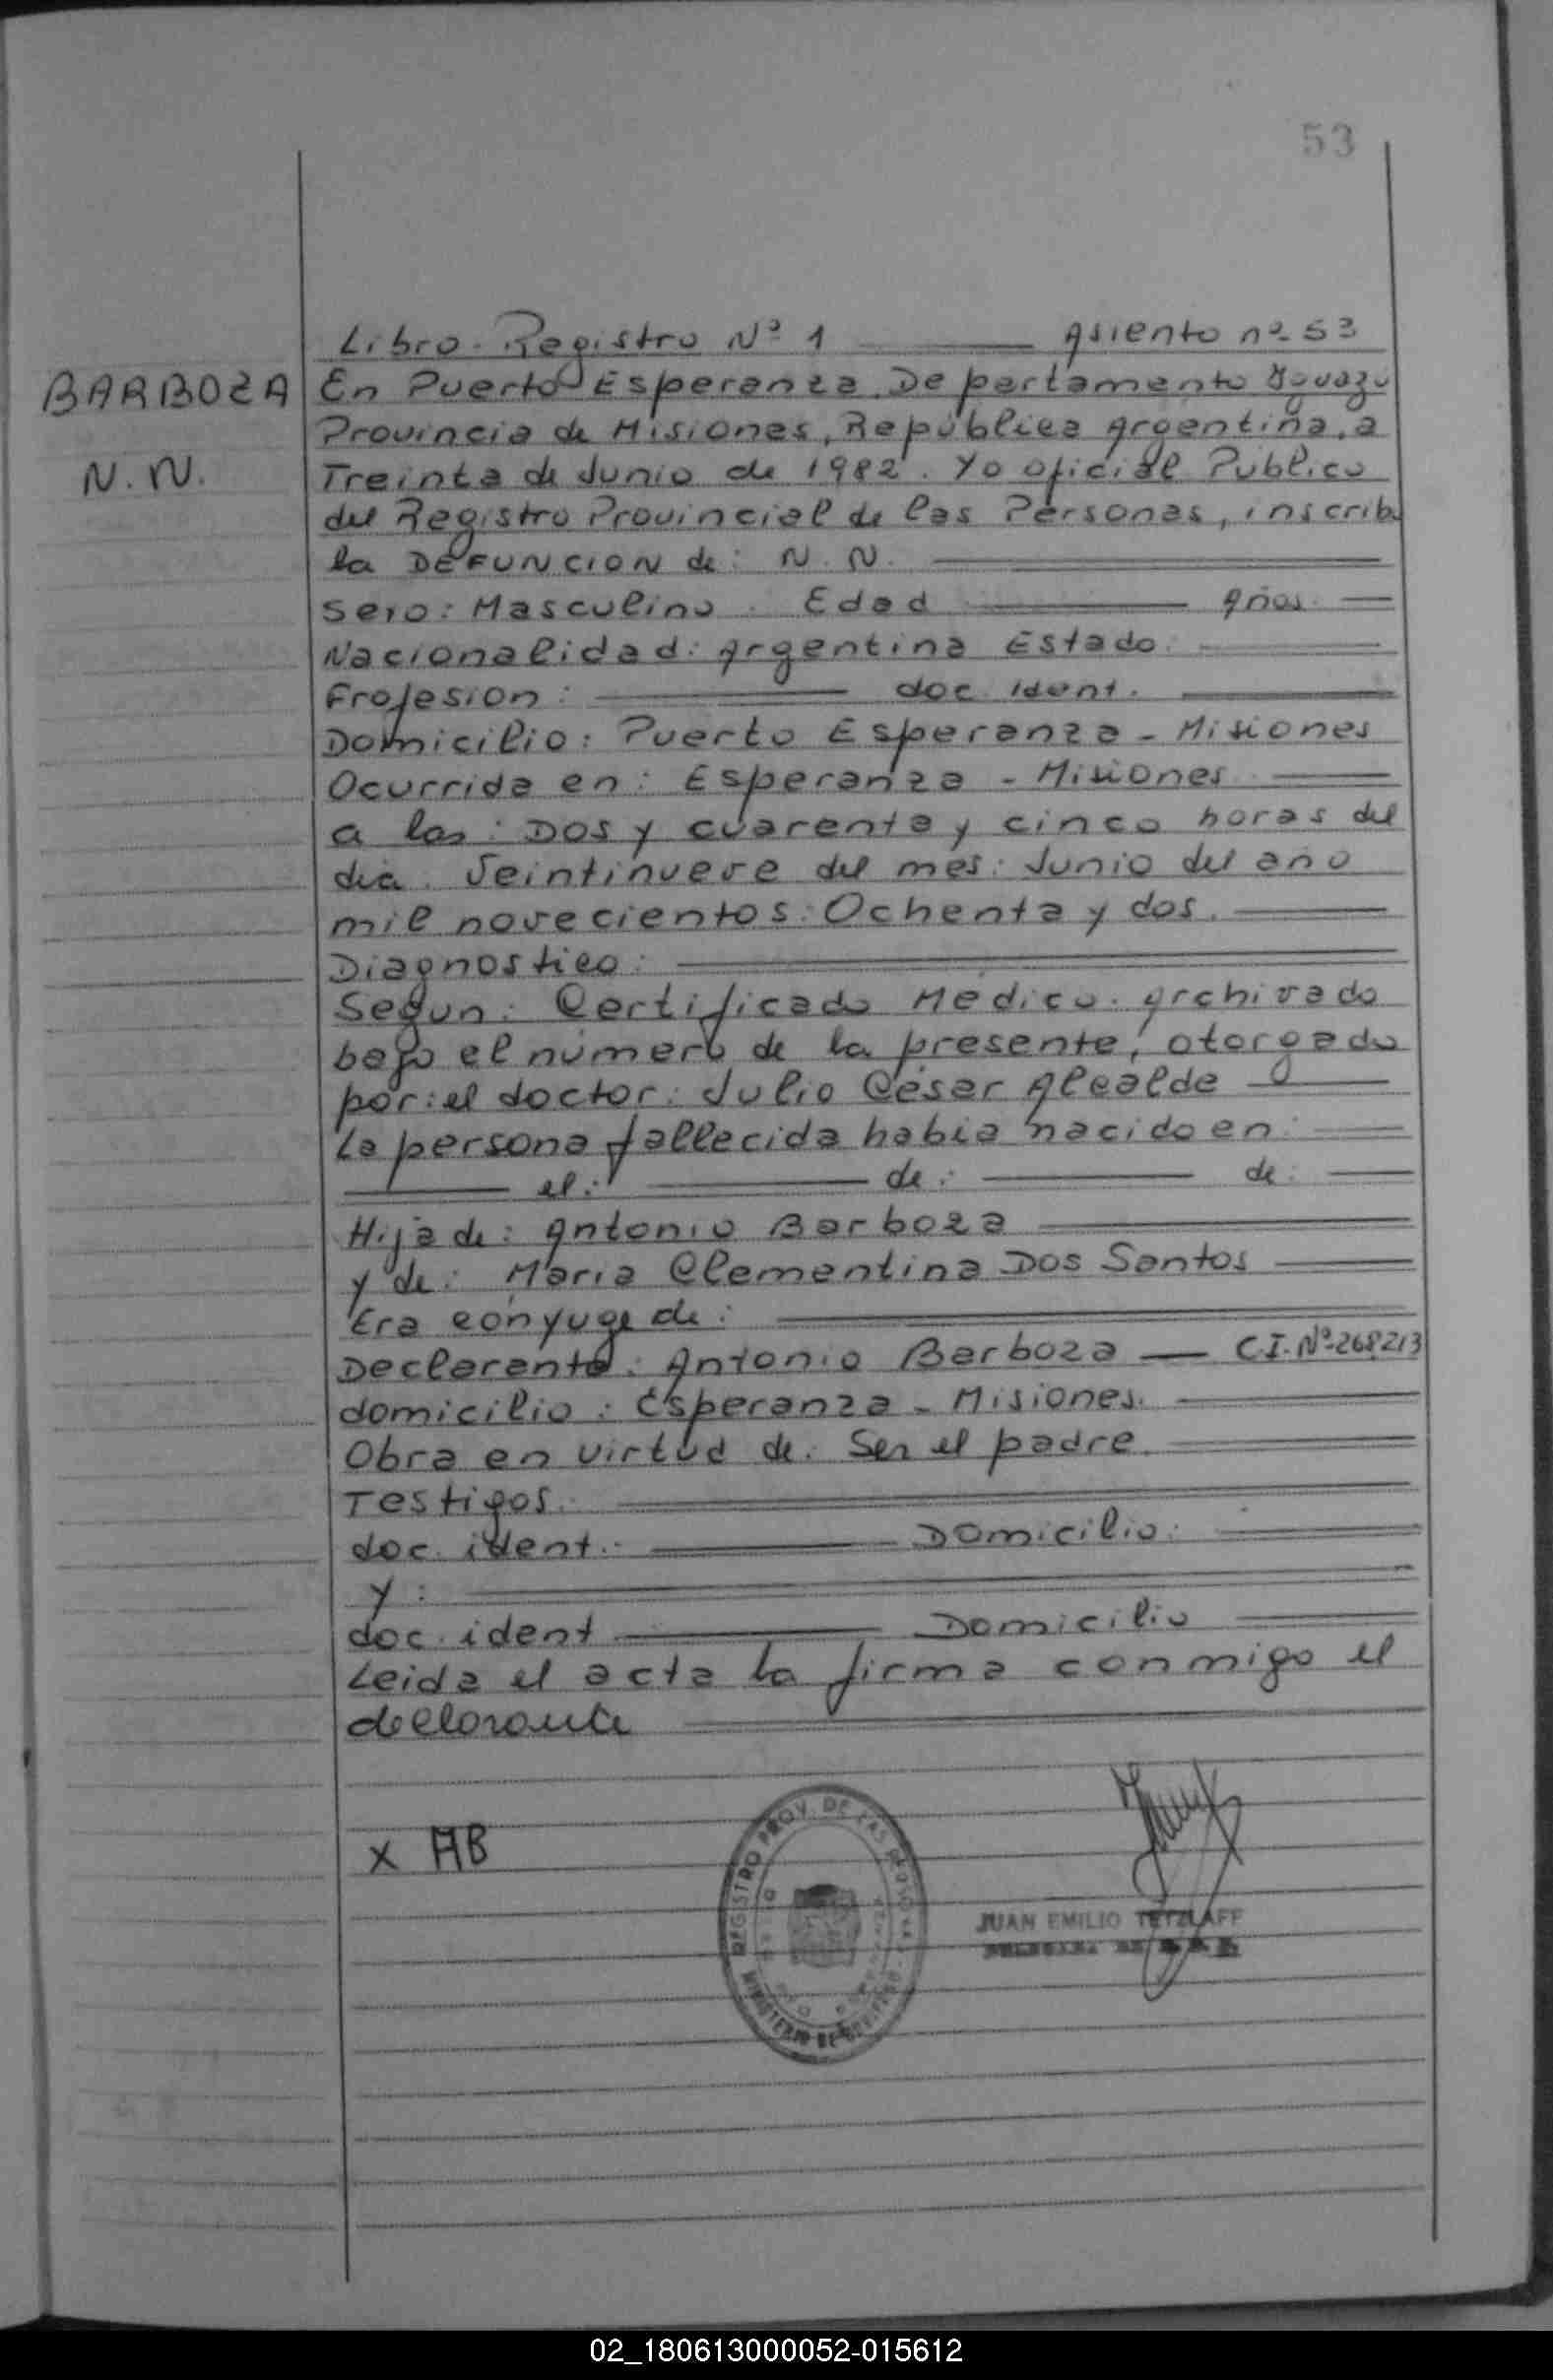 53
Libro. Registro Nº 1 Asiento nº 53
BARBOZA
N.N.
En Puerto Esperanza. Departamento Yguazu
Provincia de Misiones, República Argentina, a
Treinta de Junio de 1982. Yo oficial Publico
del Registro Provincial de las Personas, inscribo
la DEFUNCION de: N.N.
Sexo: Masculino. Edad años.
Nacionalidad: Argentina Estado:
Profesion: doc. Ident.
Domicilio: Puerto Esperanza - Misiones
Ocurrida en: Esperanza - Misiones
a las: Dos y cuarenta y cinco horas del
dia. Veintinueve del mes: Junio del año
mil novecientos: Ochenta y dos.
Diagnostico:
Segun: Certificado Medico. Archivado
bajo el número de la presente, otorgado
por: el doctor: Julio César Alcalde
La persona fallecida habia nacido en:
el: de: de:
Hija de: Antonio Barboza
y de: Maria Clementina Dos Santos
Era conyuge de:
Declarante: Antonio Barboza C.I. Nº 268213
domicilio: Esperanza - Misiones.
Obra en virtud de: Ser el padre.
Testigos:
doc. ident.- Domicilio:
y:
doc. ident Domicilio
Leida el acta la firma conmigo el
declarante
X AB
REGISTRO PROV. DE LAS PERSONAS
MINISTERIO DE GOBIERNO
JUAN EMILIO TETZLAFF
02_180613000052-015612